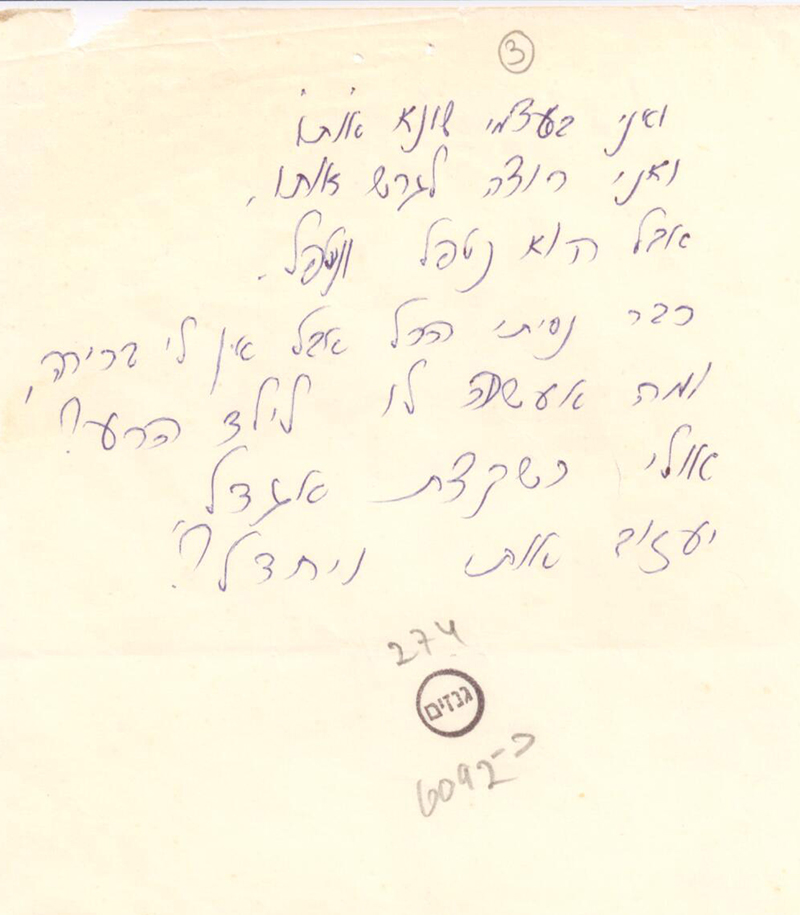 3
ואני בעצמי שונא אותו
ואני רוצה לגרש אותו,
אבל הוא נטפל ונטפל.
כבר נסיתי הכל אבל אין לי ברירה,
ומה אעשה לו לילד הרע?
אולי כשקצת אגדל
יעזוב אותי ויחדל?
274
גנזים
6092-כ